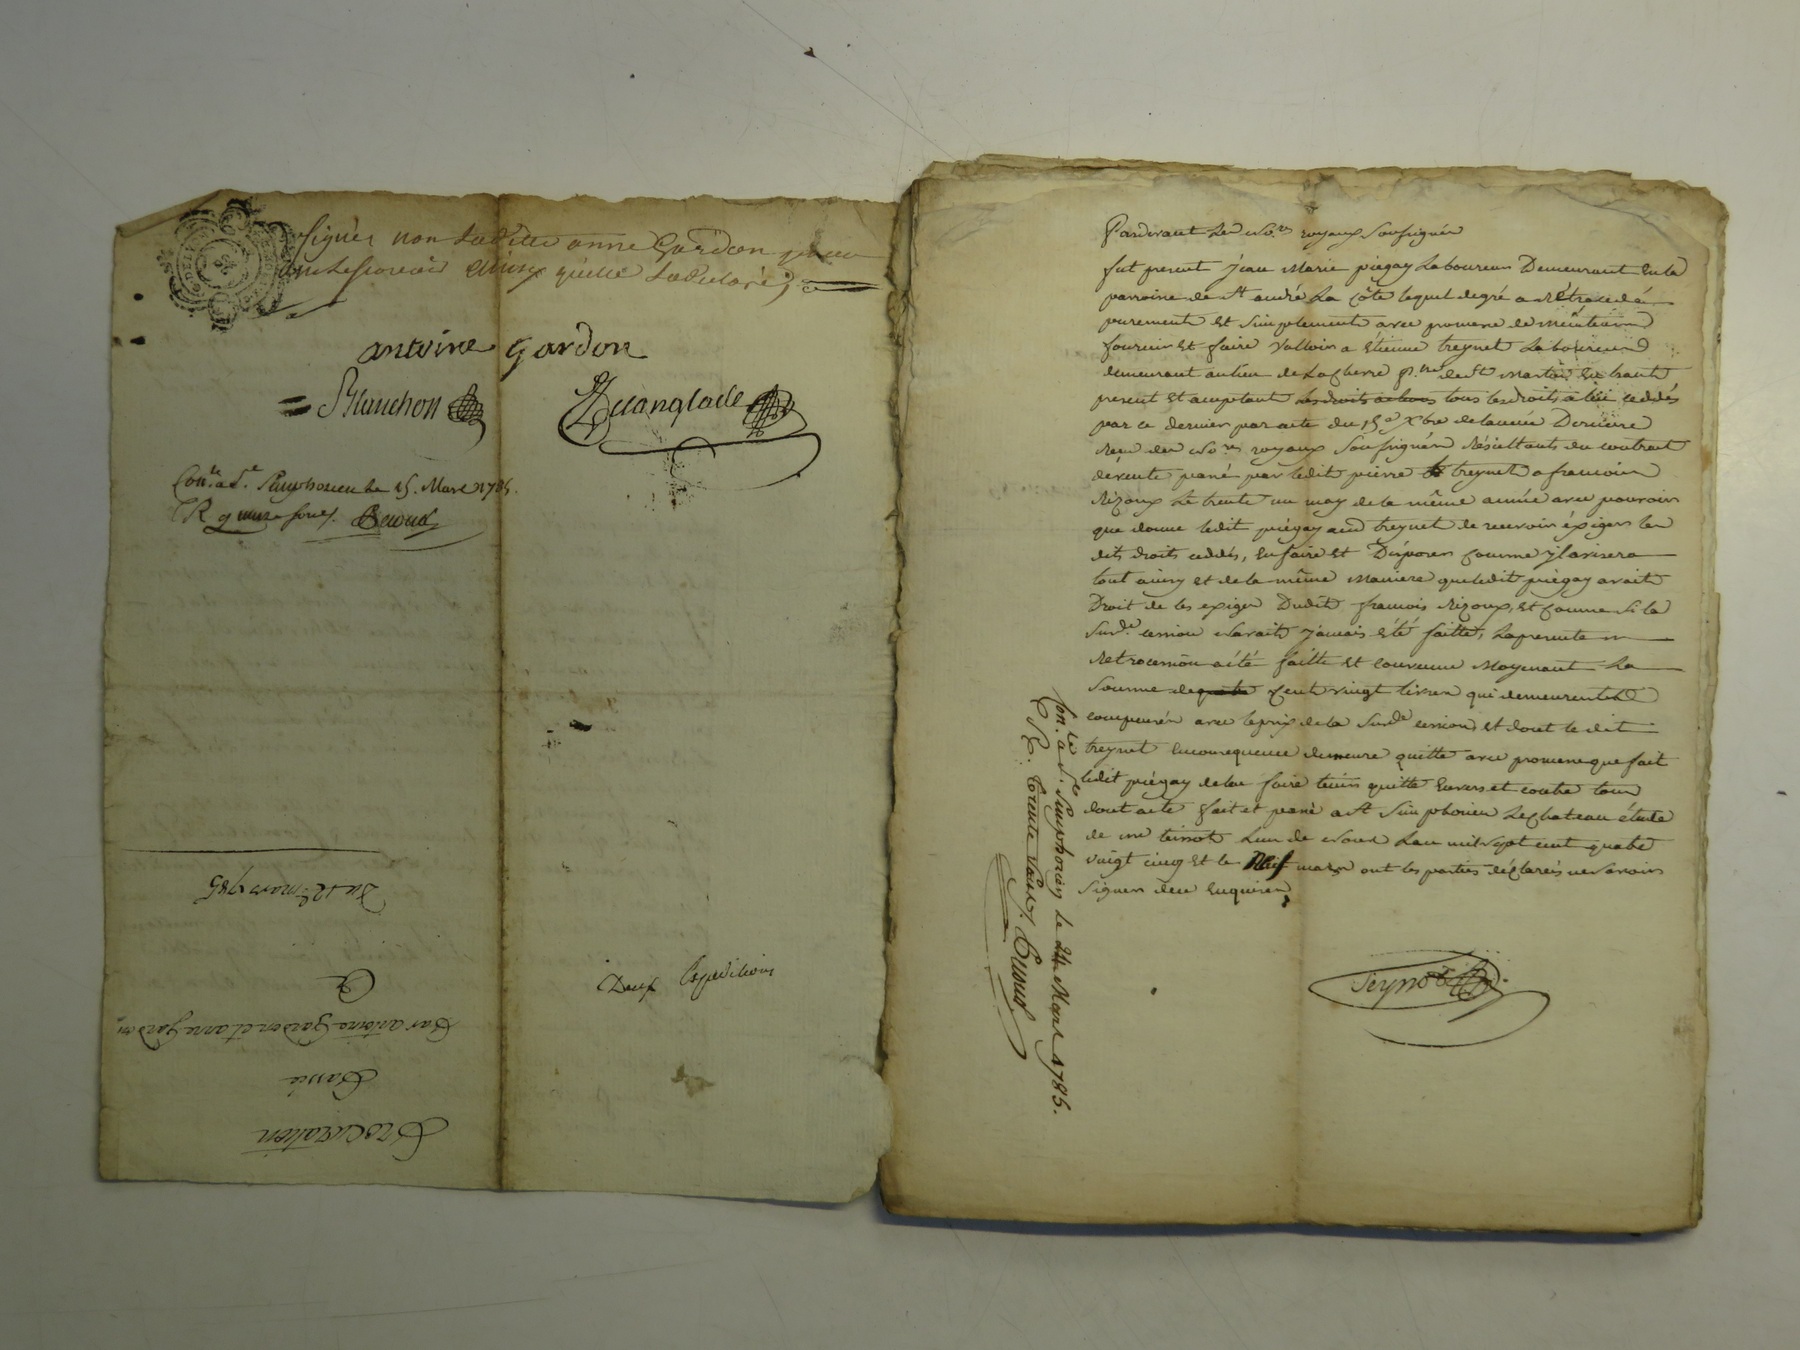 signer non laditte anne Gardon pour
ne le scavoir ainsy qu'elle la declaré;
antoine Gardon
Blanchon
Con.lé a S.t Simphorien le 15. Mars 1785.
R quinze sous.
Deux Expeditions
Procuration
Passé
Par antoine Gardon et anne gardon
Du 12e mars 1785
Pardevant Les No.res royaux Soussignés
fut present jean Marie piégay Laboureur Demeurant en la
parroisse de St andré La Côte lequel degré a rétrocedé
purement et simplement avec promesse de maintenir
fournir et faire Valloir a Etienne treynet Laboureur
demeurant au lieu de p.sse de St Martin En haut
present et acceptant les droits actions tous les droits a lui cedés
par ce dernier par acte du 15e Xbre de lannée Derniere
Recu des No.res royaux Soussignés Résultants du contrat
de vente passé par ledit pierre treynet a francois
Rizoux Le trente un may de la même année avec pouvoir
que donne ledit piégay aud treynet de recevoir éxiger les
dits droits cedés, en faire et Disposer comme il avisera
tout ainsy et de la même Maniere que ledit piégay avait
Droit de les exiger Dudit francois Rizoux, et comme si la
Surd.e cession n'avait jamais été faitte, La presente
Retrocession a été faitte et convenue Moyenant La
Somme de cent vingt livres qui demeurent
compensés avec le prix de la Surd.e cession, et dont le dit
treynet en consequence demeure quitte avec promesse que fait
ledit piégay de le faire tenir quitte Envers et contre tous
dont acte fait et passé a St Simphorien Le chateau étude
de me teissot L'un de Nous L'an mil sept cent quatre
vingt cinq et le Neuf mars ont les parties déclarés ne savoir
signer de ce Enquises
Con.lé a S.t Simphorien le 24 Mars 1785.
R. trente sous.